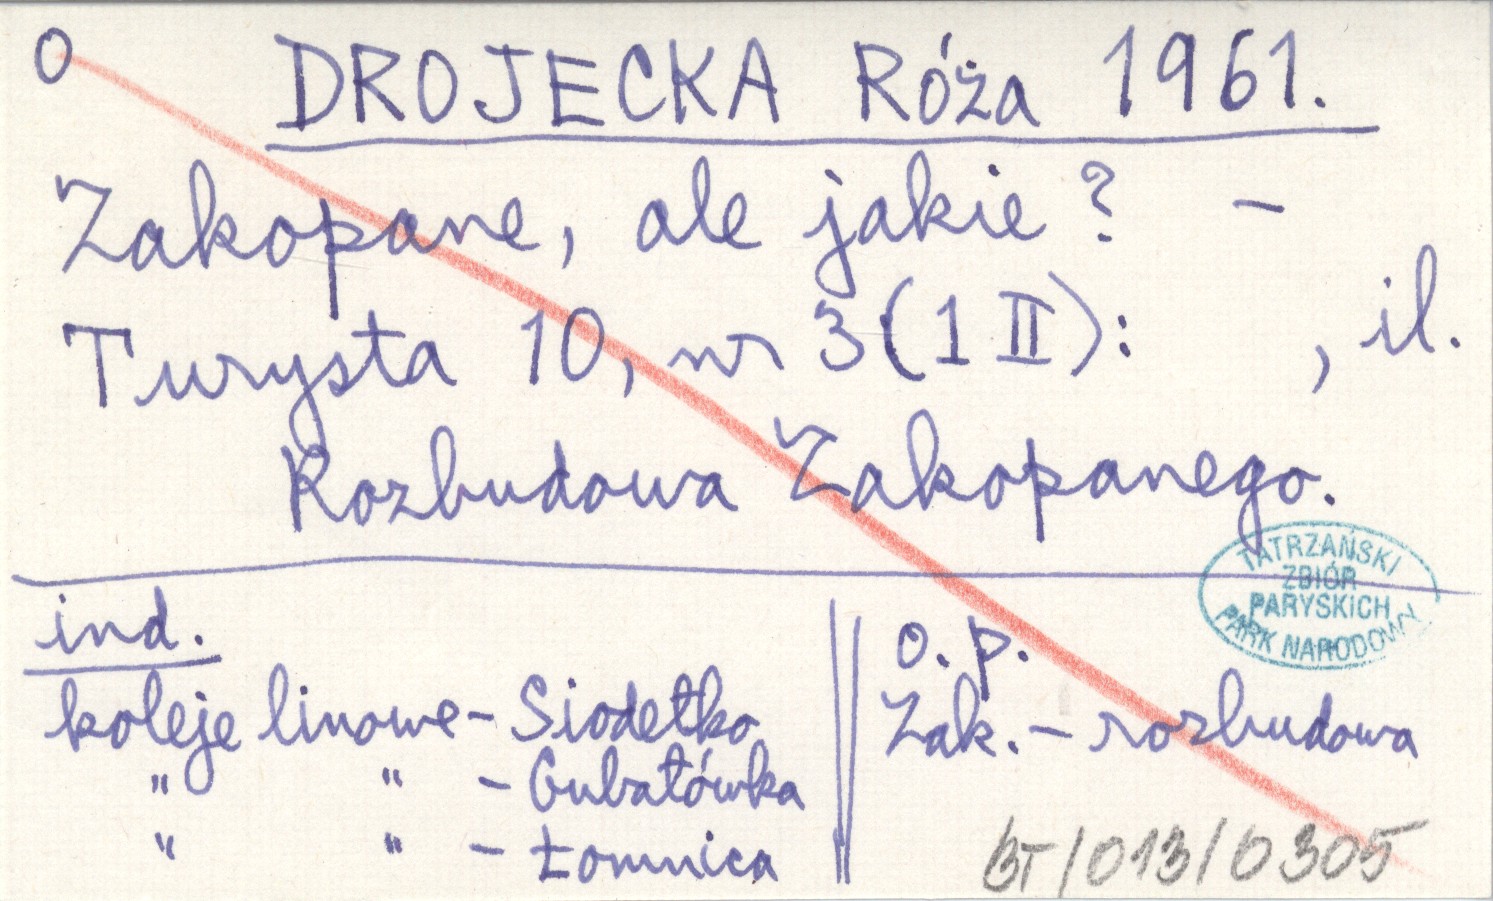 O DROJECKA Róża 1961.
Zakopane, ale jakie? -
Turysta 10, nr 3 (1 II): , il.
Rozbudowa Zakopanego.
TATRZAŃSKI
ZBIÓR
PARYSKICH
PARK NARODOWY
ind.
koleje linowe - Siodełko
" " - Gubałówka
" " - Łomnica
o. p.
Zak. - rozbudowa
BT/013/0305